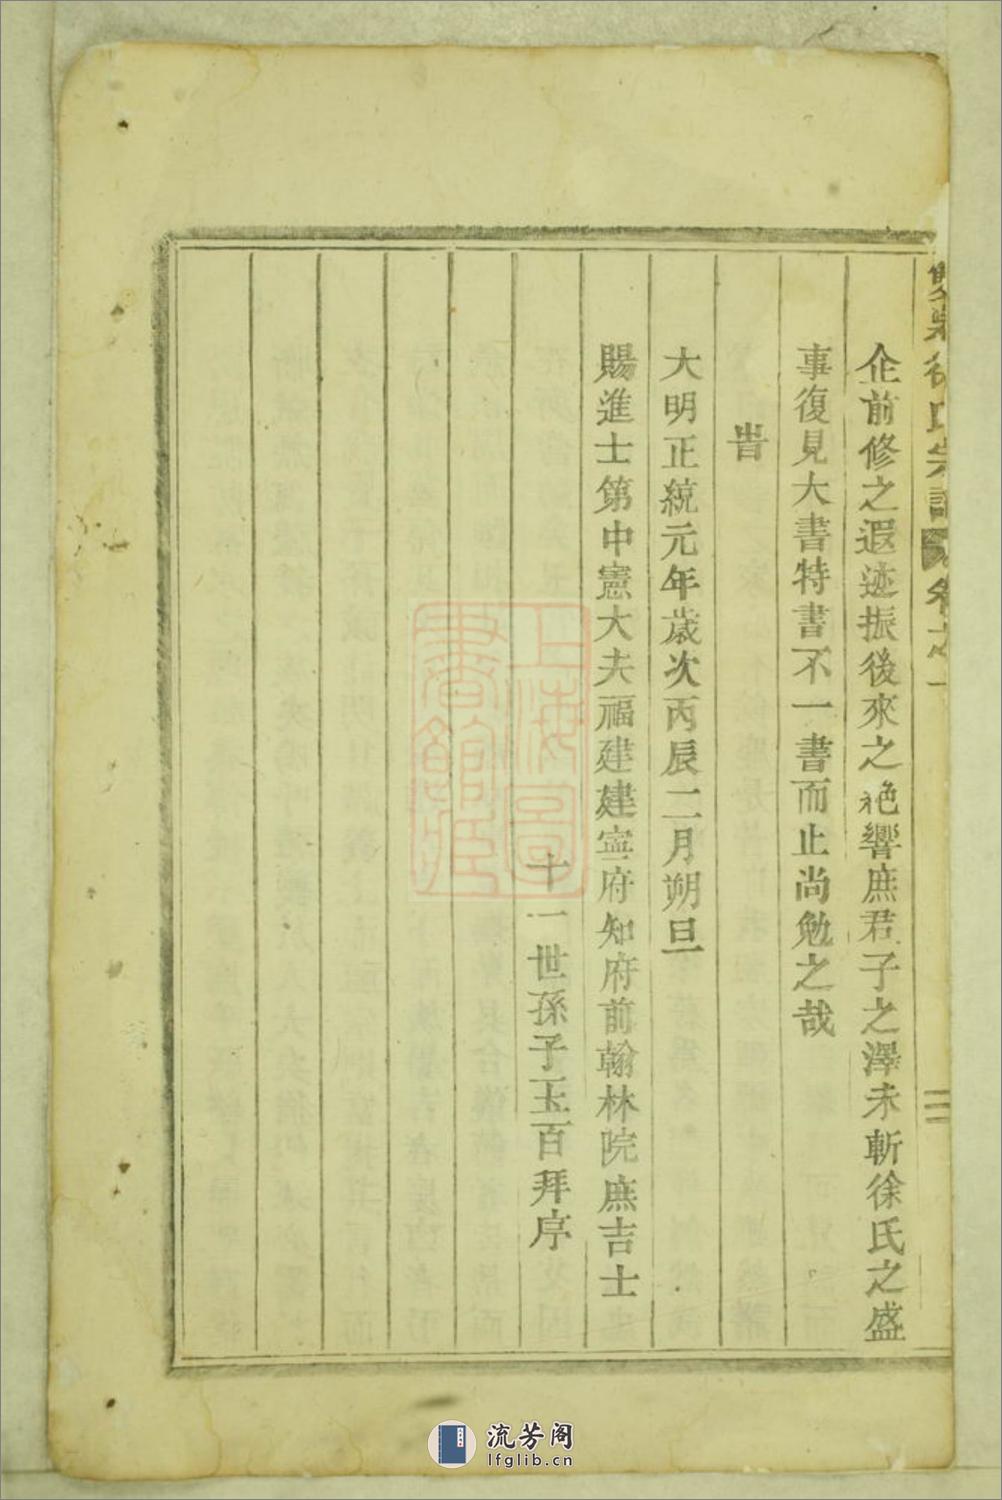 徐氏宗譜 卷之一
企前修之遐迹振後來之絶響庶君子之澤未斬徐氏之盛
事復見大書特書不一書而止尚勉之哉
旹
大明正統元年歲次丙辰二月朔旦
賜進士第中憲大夫福建建寧府知府前翰林院庶吉士
十一世孫子玉百拜序
上海圖
書館藏
流芳阁
lfglib.cn